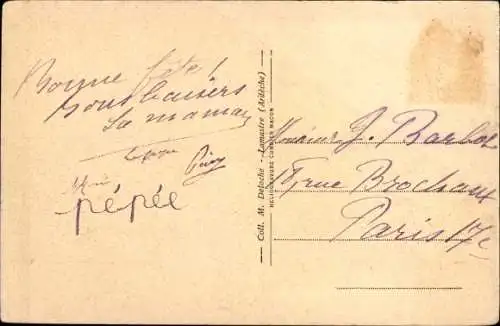 Bonne fête !
bons baisers
Sa maman
pépée
Coll. M. Deloche - Lamastre (Ardèche)
HELIOGRAVURE COMBIER MACON
Monsieur J. Barlot
rue Brochant
Paris 17e